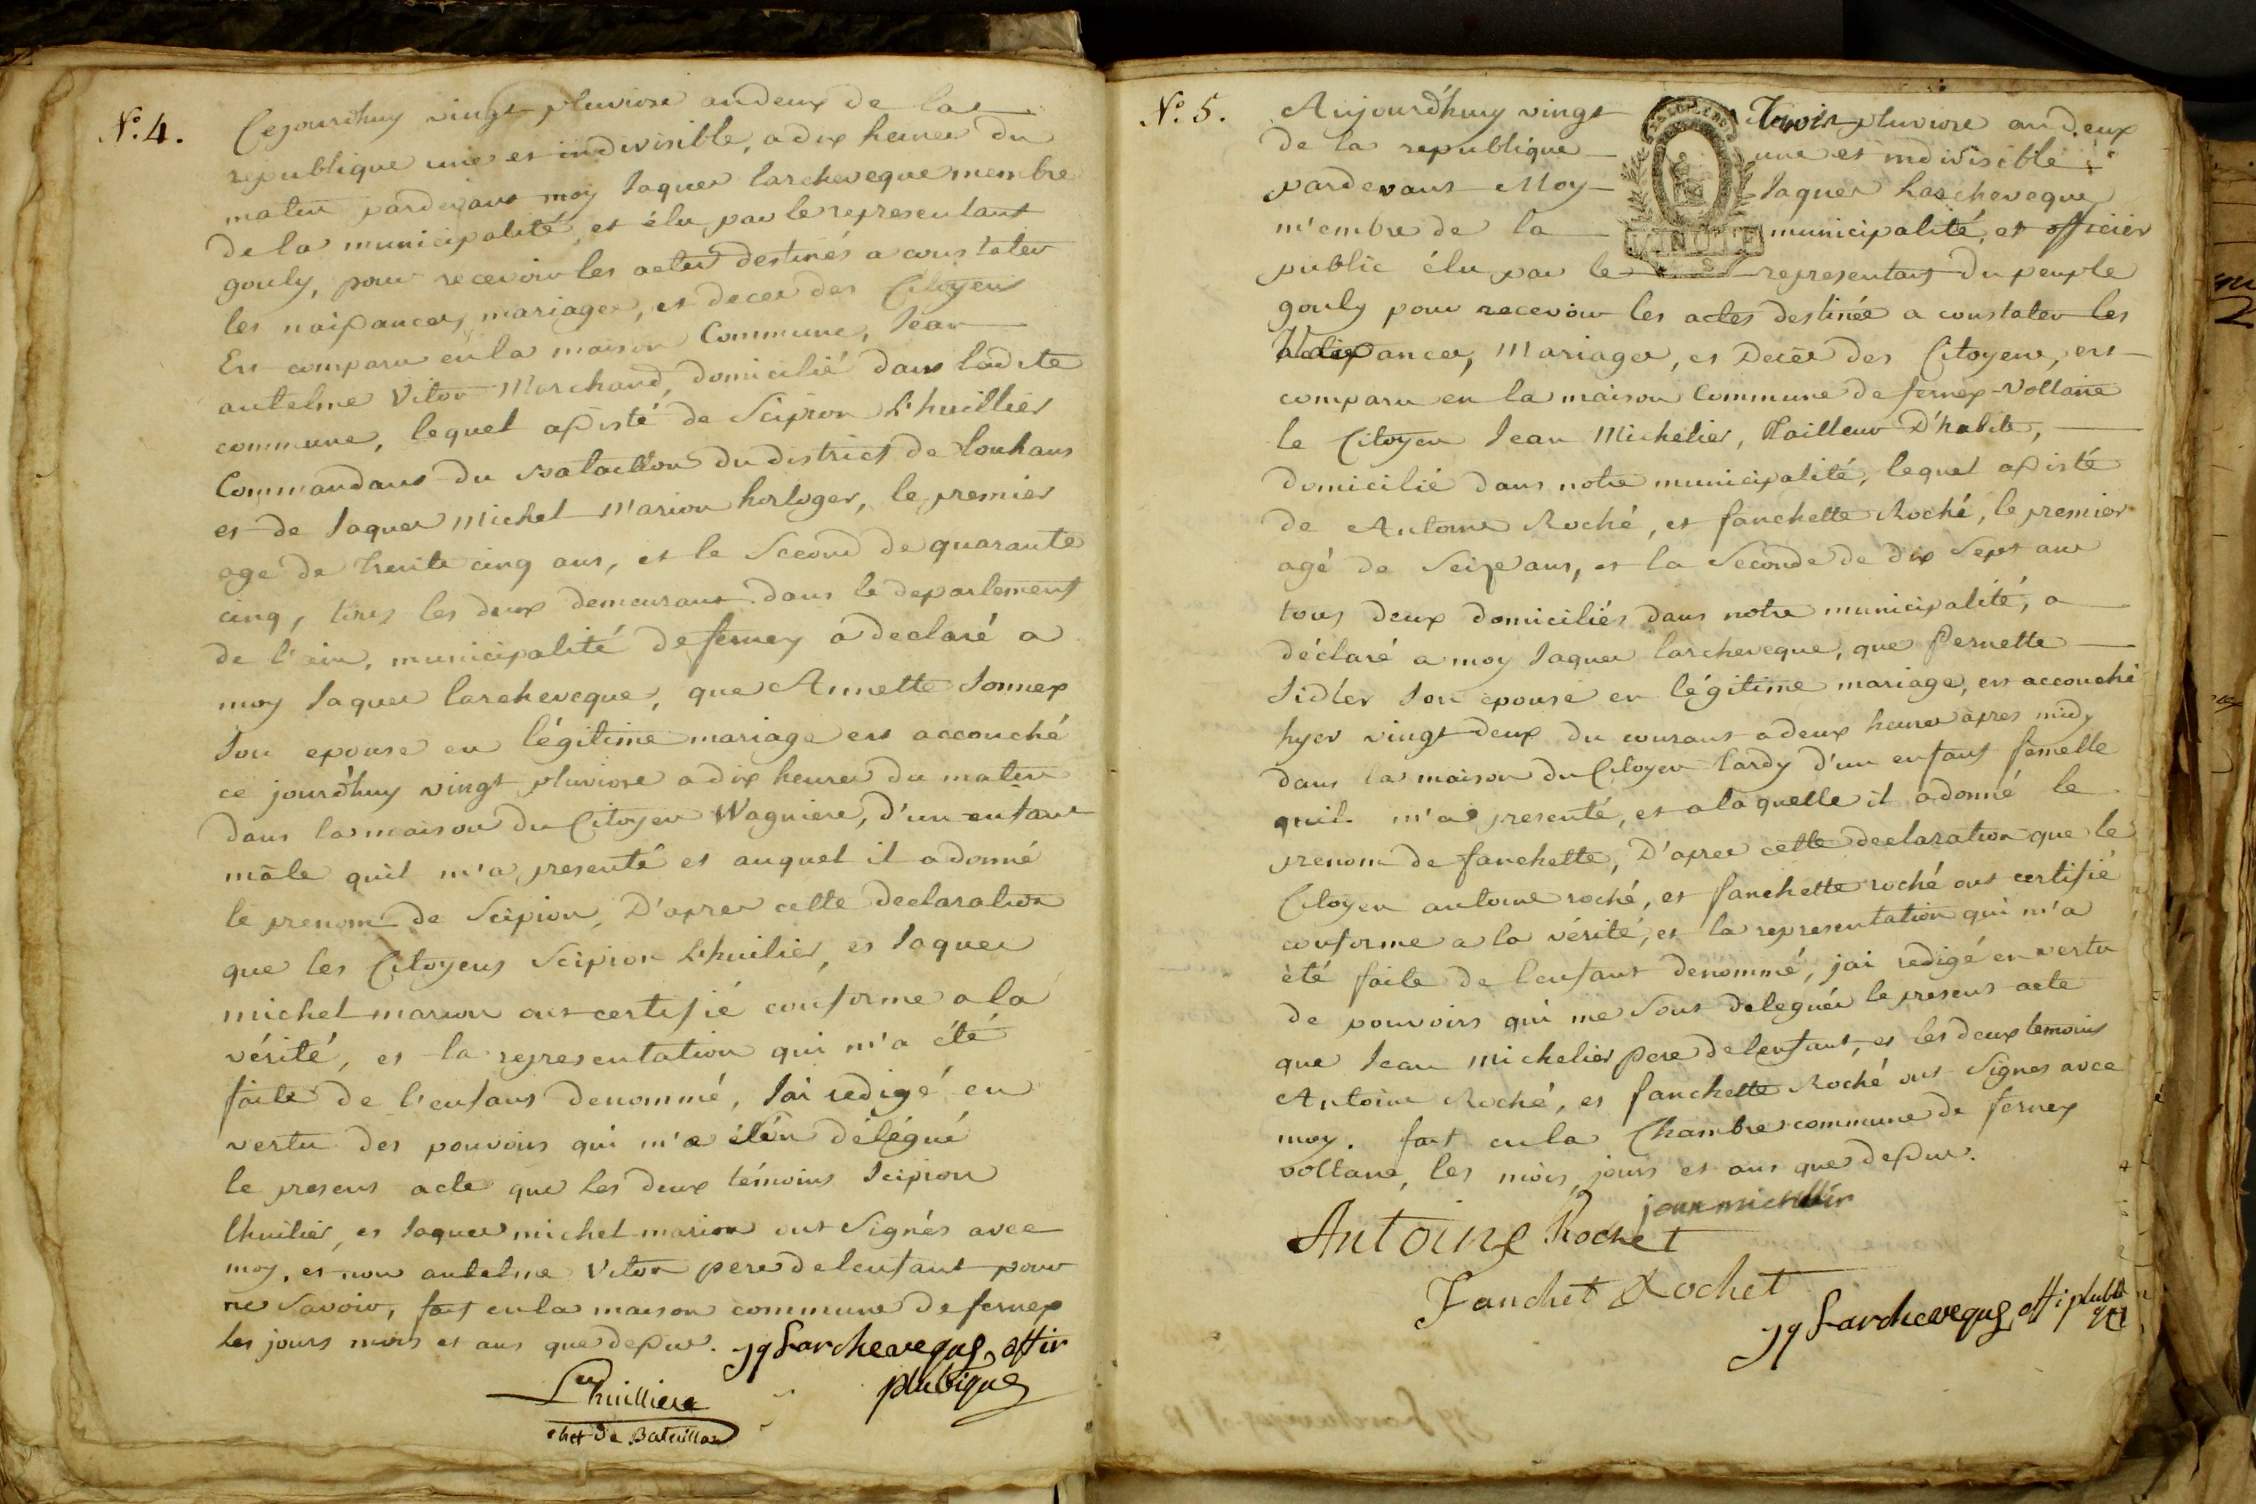 N.° 4.
Cejourd'huy vingt pluviose an deux de la
republique une et indivisible, a dix heures du
matin pardevant moy Jaques larcheveque membre
de la municipalité, et élu par le representant
gouly, pour recevoir les actes destinés a constater
les naissances, mariages, et deces des Citoyens
Est comparu en la maison Commune, Jean
antelme Viton Marchand, domicilié dans ladite
commune, lequel assisté de Scipion L'huillier
Commandant du Bataillon du district de louhans
et de Jaques Michel Marion horloger, le premier
age de trente cinq ans, et le Second de quarante
cinq, tous les deux demeurant dans le departement
de l'ain, municipalité de ferney a declaré a
moy Jaques larcheveque, que Annette Jonnex
Son epouse en légitime mariage est accouché
ce jourd'huy vingt pluviose a dix heures du matin
dans la maison du Citoyen Wagniere, d'un enfant
mâle qu'il m'a presenté et auquel il a donné
le prenom de Scipion, D'apres cette declaration
que les Citoyens Scipion L'huilier, et Jaques
michel marion ont certifié conforme a la
vérité, et la representation qui m'a été
faite de l'enfant denommé, Jai redigé en
vertu des pouvoirs qui m'a délégué
le present acte que les deux témoins Scipion
lhuilier, et Jaques michel marion ont Signés avec
moy, et non antelme Viton pere de lenfant pour
ne Savoir, fait en la maison commune de fernex
les jours mois et ans que dessus. Jq Larcheveque offir
plubique
Lhuilliere
chef de Bataillon
N.° 5.
Aujourd'huy vingt Trois pluviose an deux
de la republique une et indivisible
pardevant Moy Jaques Larcheveque
m'embre de la municipalité, et officier
MINUTE
public élu par le representant du peuple
gouly pour recevoir les actes destinés a constater les
Naissances, Mariages, et Decès des Citoyens, est
comparu en la maison Commune de fernex-Voltaire
le Citoyen Jean Michelier, Tailleur D'habits,
domicilié dans notre municipalité, lequel assisté
de Antoine Roché, et fanchette Roché, le premier
agé de Seize ans, et la Seconde de dix Sept ans
tous deux domiciliés dans notre municipalité, a
déclaré a moy Jaques larcheveque, que Pernette
Sidler Son epouse en légitime mariage, est accouché
hyer vingt deux du courant a deux heures apres midy
dans la maison du Citoyen lardy d'un enfant femelle
quil m'a presenté, et a laquelle il a donné le
prenom de fanchette, D'apres cette declaration que le
Citoyen antoine roché, et fanchette roché ont certifié
conforme a la vérité, et la representation qui m'a
été faite de lenfant denommé, jai redigé en vertu
de pouvoirs qui me Sont delegués le present acte
que Jean Michelier pere de lenfant, et les deux temoins
Antoine Roché, et fanchette Roché ont Signes avec
moy. fait en la Chambre commune de fernex
voltaire, les mois, jours et ans que dessus.
Antoine Rochet
Fanchet Rochet
Jq Larcheveque